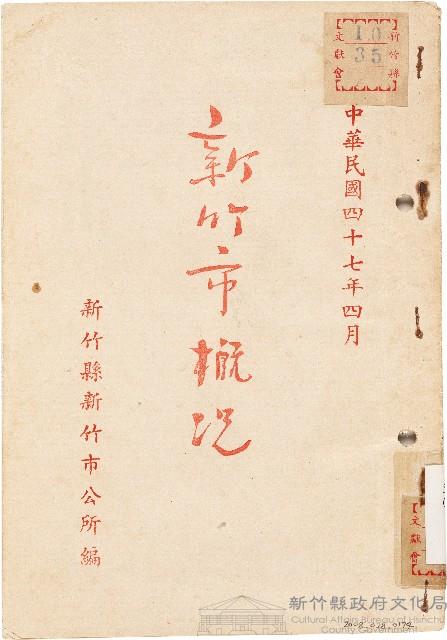 新竹縣
10
35
文獻會
中華民國四十七年四月
新竹市概況
新竹縣新竹市公所編
文獻會
新竹縣政府文化局
Cultural Affairs Bureau of Hsinchu
County Government
2008_018_0174